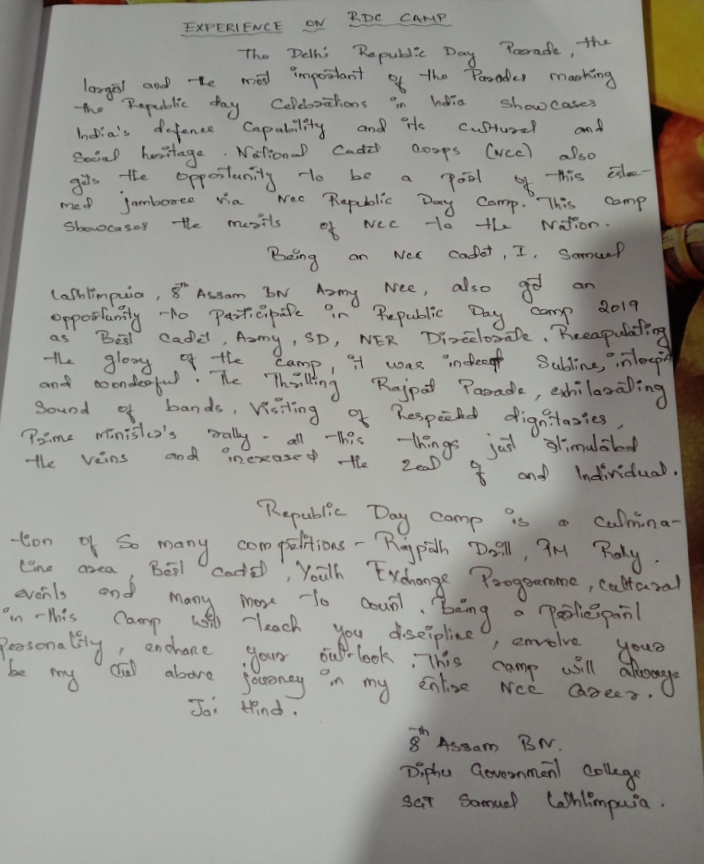 EXPERIENCE ON RDC CAMP
The Delhi Republic Day Parade, the
largest and the most important of the Parades marking
the Republic day Celebrations in India showcases
India's defence Capability and its cultural and
Social heritage. National Cadet Corps (NCC) also
gets the opportunity to be a part of this este-
med jamboree via Ncc Republic Day Camp. This camp
Showcases the merits of NCC to the Nation.
Being an Ncc cadet, I, Samuel
8th Assam BN Army Ncc, also got an
opportunity to Participate in Republic Day Camp 2019
as Best Cadet, Army, SD, NER Directorate.
the glory of the camp, it was indeed Subline, intrepid
and wonderful. The Thrilling Rajpat Parade, exhilarating
Sound of bands, Visiting of Respected dignitaries,
Prime Minister's rally - all this things just stimulated
the veins and increased the zeal of and Individual.
Republic Day Camp is a culmina-
tion of So many competitions - Rajpath Drill, PM Rally.
Line area, Best Cadet, Youth Exchange Programme, cultural
events and many more to count. Being a Participant
in this Camp will teach you discipline, envolve your
Personality, enchane your out-look. This camp will always
be my above journey in my entire Ncc Career.
Jai Hind.
8th Assam BN.
Diphu Government College
SGT Samuel